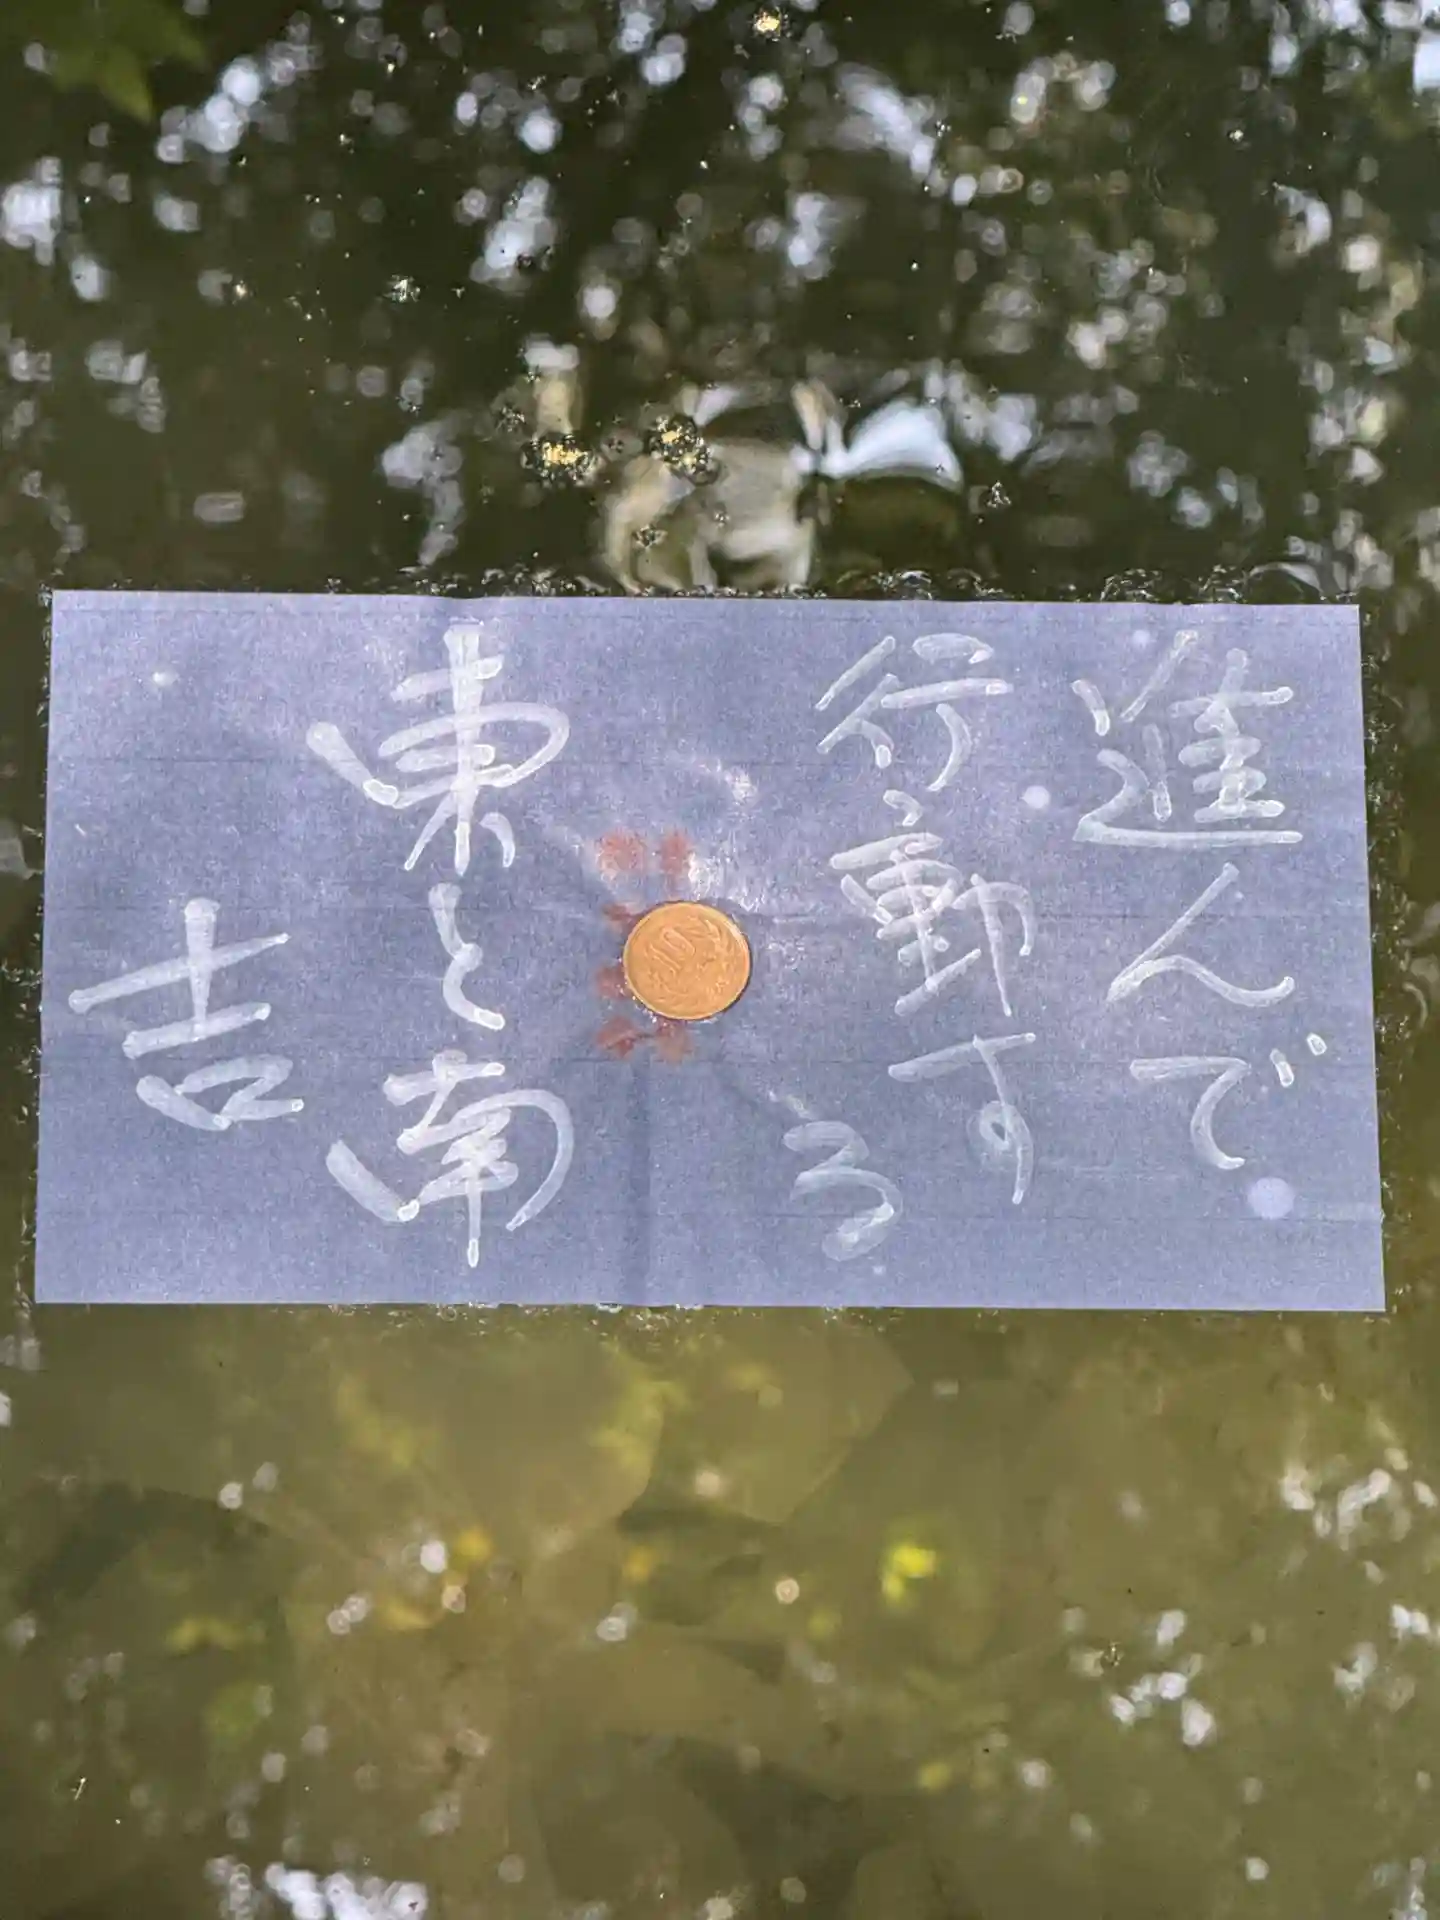 進んで
行動する
東と南
吉
10